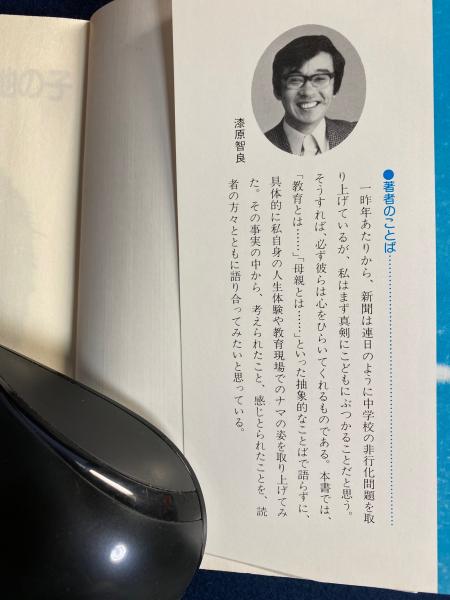 ●著者のことば
一昨年あたりから、新聞は連日のように中学校の非行化問題を取
り上げているが、私はまず真剣にこどもにぶつかることだと思う。
そうすれば、必ず彼らは心をひらいてくれるものである。本書では、
「教育とは……」「母親とは……」といった抽象的なことばで語らずに、
具体的に私自身の人生体験や教育現場でのナマの姿を取り上げてみ
た。その事実の中から、考えられたこと、感じとられたことを、読
者の方々とともに語り合ってみたいと思っている。
漆原智良
の子